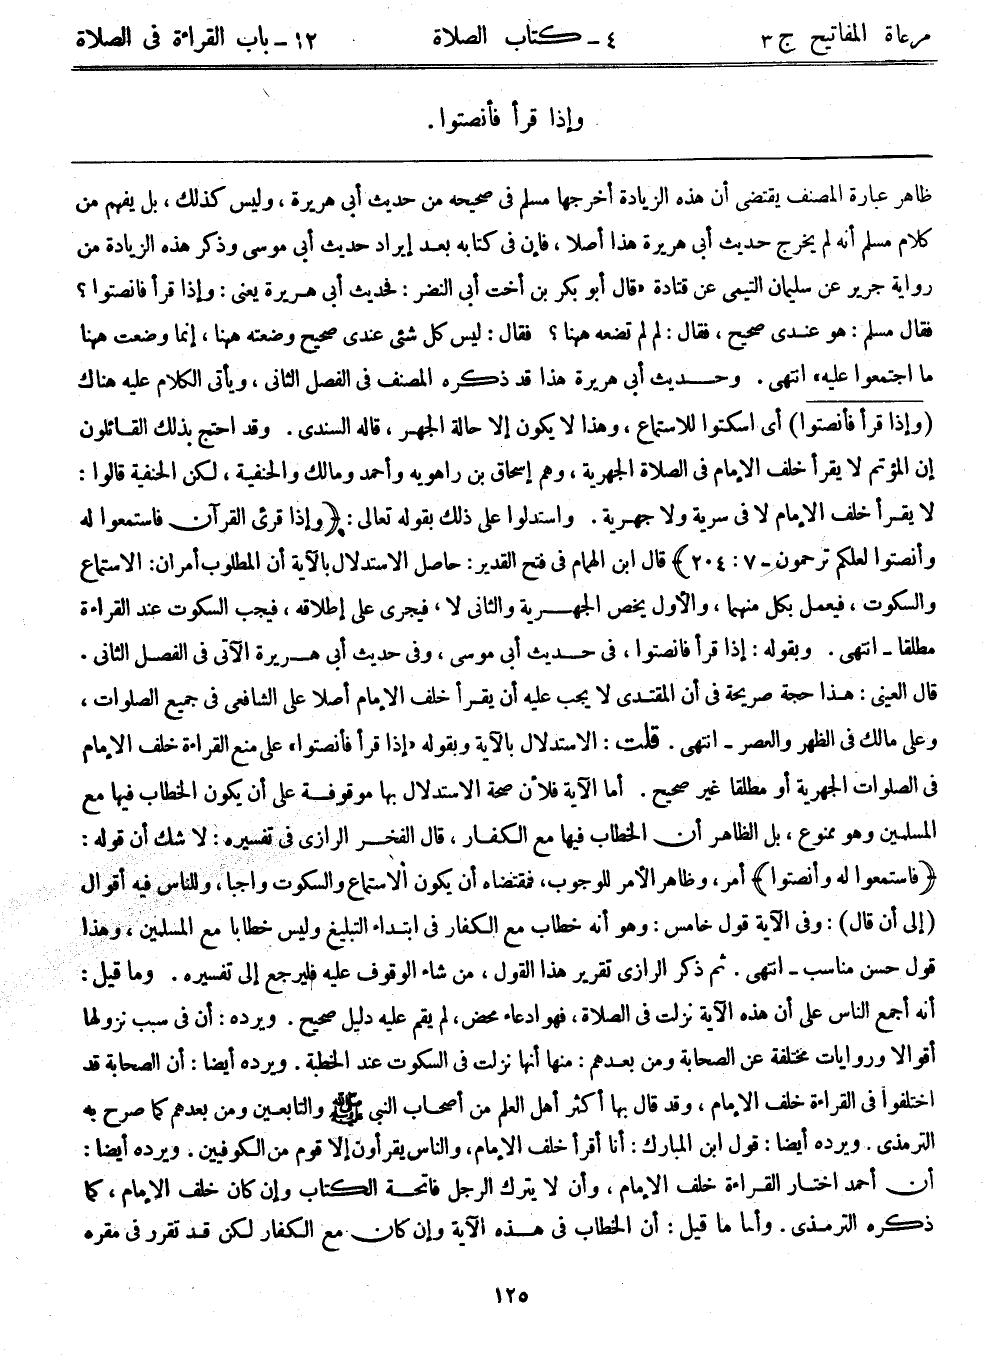 مرعاة المفاتيح ج ٣ ٤ - كتاب الصلاة ١٢ - باب القراءة فى الصلاة
وإذا قرأ فأنصتوا .
ظاهر عبارة المصنف يقتضى أن هذه الزيادة أخرجها مسلم فى صحيحه من حديث أبى هريرة ، وليس كذلك ، بل يفهم من
كلام مسلم أنه لم يخرج حديث أبى هريرة هذا أصلا ، فإن فى كتابه بعد إيراد حديث أبى موسى وذكر هذه الزيادة من
رواية جرير عن سليمان التيمى عن قتادة «قال أبو بكر بن أخت أبى النضر : فحديث أبى هريرة يعنى : وإذا قرأ فانصتوا ؟
فقال مسلم : هو عندى صحيح ، فقال : لم لم تضعه ههنا ؟ فقال : ليس كل شئى عندى صحيح وضعته ههنا ، إنما وضعت ههنا
ما اجتمعوا عليه» انتهى . وحديث أبى هريرة هذا قد ذكره المصنف فى الفصل الثانى ، ويأتى الكلام عليه هناك
(وإذا قرأ فأنصتوا) أى اسكتوا للاستماع ، وهذا لا يكون إلا حالة الجهر ، قاله السندى . وقد احتج بذلك القائلون
إن المؤتم لا يقرأ خلف الإمام فى الصلاة الجهرية ، وهم إسحاق بن راهويه وأحمد ومالك والحنفية ، لكن الحنفية قالوا :
لا يقرأ خلف الإمام لا فى سرية ولا جهرية . واستدلوا على ذلك بقوله تعالى : ﴿وإذا قرئ القرآن فاستمعوا له
وأنصتوا لعلكم ترحمون - ٧ : ٢٠٤﴾ قال ابن الهمام فى فتح القدير : حاصل الاستدلال بالآية أن المطلوب أمران : الاستماع
والسكوت ، فيعمل بكل منهما ، والأول يخص الجهرية والثانى لا ، فيجرى على إطلاقه ، فيجب السكوت عند القراءة
مطلقا - انتهى . وبقوله : إذا قرأ فانصتوا ، فى حديث أبى موسى ، وفى حديث أبى هريرة الآتى فى الفصل الثانى .
قال العينى : هذا حجة صريحة فى أن المقتدى لا يجب عليه أن يقرأ خلف الإمام أصلا على الشافعى فى جميع الصلوات ،
وعلى مالك فى الظهر والعصر - انتهى . قلت : الاستدلال بالآية وبقوله «إذا قرأ فأنصتوا» على منع القراءة خلف الإمام
فى الصلوات الجهرية أو مطلقا غير صحيح . أما الآية فلأن صحة الاستدلال بها موقوفة على أن يكون الخطاب فيها مع
المسلمين وهو ممنوع ، بل الظاهر أن الخطاب فيها مع الكفار ، قال الفخر الرازى فى تفسيره : لا شك أن قوله :
﴿فاستمعوا له وأنصتوا﴾ أمر ، وظاهر الأمر للوجوب ، فمقتضاه أن يكون الاستماع والسكوت واجبا ، وللناس فيه أقوال
(إلى أن قال) : وفى الآية قول خامس : وهو أنه خطاب مع الكفار فى ابتداء التبليغ وليس خطابا مع المسلمين ، وهذا
قول حسن مناسب - انتهى . ثم ذكر الرازى تقرير هذا القول ، من شاء الوقوف عليه فليرجع إلى تفسيره . وما قيل :
أنه أجمع الناس على أن هذه الآية نزلت فى الصلاة ، فهو ادعاء محض ، لم يقم عليه دليل صحيح . ويرده : أن فى سبب نزولها
أقوالا وروايات مختلفة عن الصحابة ومن بعدهم : منها أنها نزلت فى السكوت عند الخطبة . ويرده أيضا : أن الصحابة قد
اختلفوا فى القراءة خلف الإمام ، وقد قال بها أكثر أهل العلم من أصحاب النبى ﷺ والتابعين ومن بعدهم كما صرح به
الترمذى . ويرده أيضا : قول ابن المبارك : أنا أقرأ خلف الإمام ، والناس يقرأون إلا قوم من الكوفيين . ويرده أيضا :
أن أحمد اختار القراءة خلف الإمام ، وأن لا يترك الرجل فاتحة الكتاب وإن كان خلف الإمام ، كما
ذكره الترمذى . وأما ما قيل : أن الخطاب فى هذه الآية وإن كان مع الكفار لكن قد تقرر فى مقره
١٢٥